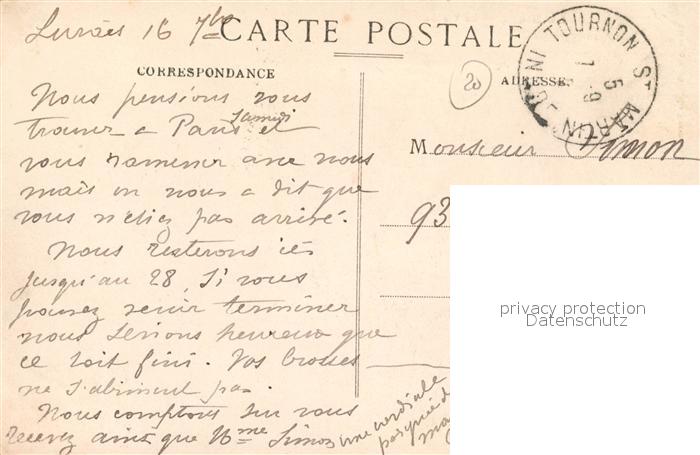 Lurais 16 7bre
CARTE POSTALE
CORRESPONDANCE
20
ADRESSE
TOURNON St MARTIN
5 -9
Monsieur Simon
93
Nous pensions vous
trouver a Paris Samedi et
vous ramener avec nous
mais on nous a dit que
vous n'étiez pas arrivé.
Nous resterons ici
jusqu'au 28, Si vous
pouvez venir terminer
nous serions heureux que
ce soit fini. Vos brosses
ne s'abiment pas.
Nous comptons sur vous
recevez ainsi que Mme Simon une cordiale
poignée d
ma
privacy protection
Datenschutz